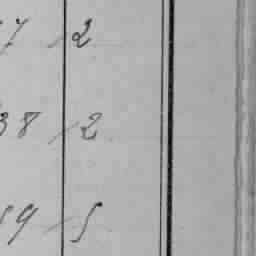 7 2
38 2
59 5